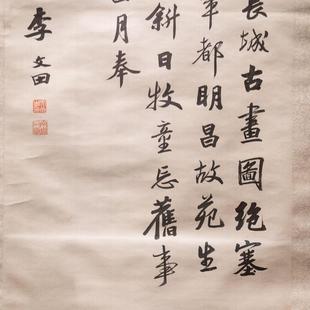 長城古畫圖絶塞
年都明昌故苑生
斜日牧童忘舊事
月奉
李文田